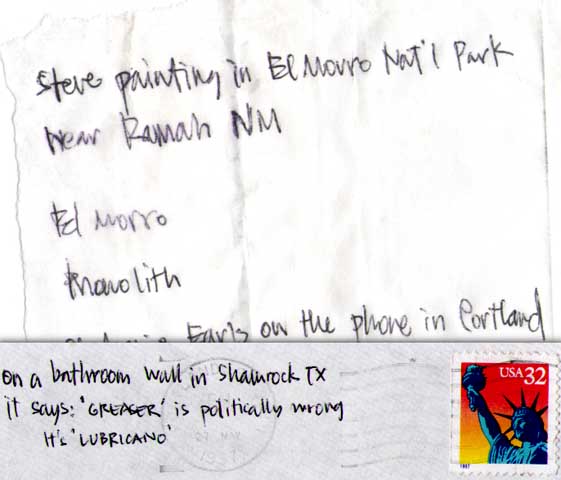 Steve painting in El Morro Nat'l Park
near Ramah NM
El Morro
Monolith
Earls on the phone in
on a bathroom wall in Shamrock TX
it says: 'GREASER' is politically wrong
It's 'LUBRICANO'
USA 32
1997